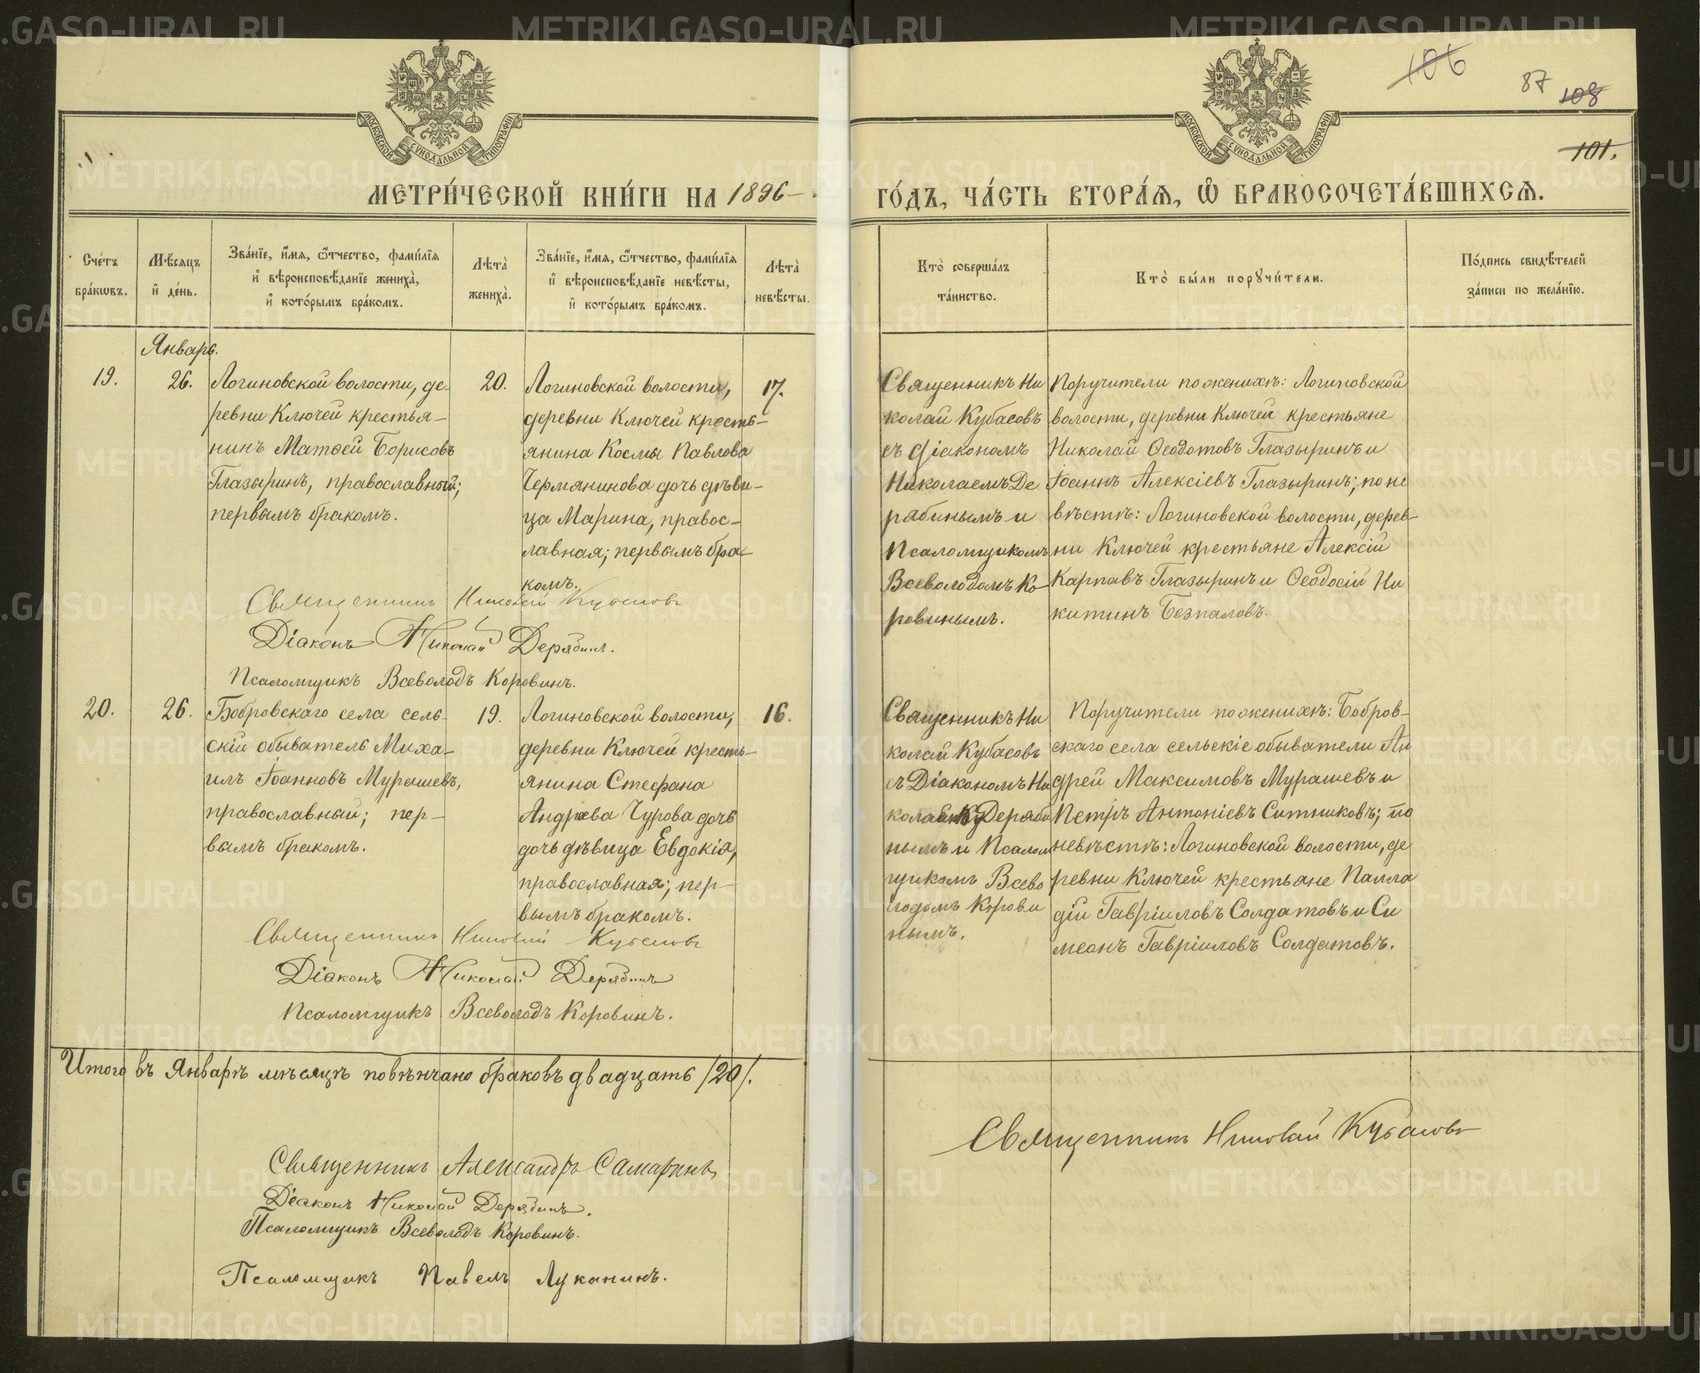 106
87
108
101.
МОСКОВСКОЙ СѴНОДАЛЬНОЙ ТИПОГРАФІИ
МОСКОВСКОЙ СѴНОДАЛЬНОЙ ТИПОГРАФІИ
МЕТРИ́ЧЕСКОЙ КНИ́ГИ НА 1896
ГО́ДЪ, ЧА́СТЬ ВТОРА́Ѧ, Ѡ҆ БРАКОСОЧЕТА́ВШИХСѦ.
Сче́тъ
бра́кѡвъ.
Мѣ́сѧцъ
и҆ де́нь.
Зва́нїе, и҆́мѧ, ѻ҆́тчество, фами́лїѧ
и҆ вѣроисповѣ́данїе жениха̀,
и҆ кото́рымъ бра́комъ.
Лѣта̀
жениха̀.
Зва́нїе, и҆́мѧ, ѻ҆́тчество, фами́лїѧ
и҆ вѣроисповѣ́данїе невѣ́сты,
и҆ кото́рымъ бра́комъ.
Лѣта̀
невѣ́сты.
Кто̀ соверша́лъ
та́инство.
Кто̀ бы́ли порꙋчи́тели.
По́дпись свидѣ́телей
за́писи по жела́нїю.
Январь.
19.
26.
Логиновской волости, де-
ревни Ключей крестья-
нинъ Матѳей Борисовъ
Глазыринъ, православный;
первымъ бракомъ.
20.
Логиновской волости,
деревни Ключей кресть-
янина Космы Павлова
Чермянинова дочь дѣви-
ца Марина, правос-
лавная; первымъ бра-
комъ.
17.
Священникъ Ни
колай Кубасовъ
съ діакономъ
Николаемъ Де
рябинымъ и
Псаломщикомъ
Всеволодомъ Ко-
ровинымъ.
Поручители по женихѣ: Логиновской
волости, деревни Ключей крестьяне
Николай Ѳеодотовъ Глазыринъ и
Іоаннъ Алексіевъ Глазыринъ; по не
вѣстѣ: Логиновской волости, дерев-
ни Ключей крестьяне Алексій
Карпавъ Глазыринъ и Ѳеодосій Ни
китинъ Безпаловъ.
Священникъ Николай Кубасовъ
Діаконъ Николай Дерябинъ.
Псаломщикъ Всеволодъ Коровинъ.
20.
26.
Бобровскаго села сель-
скій обыватель Миха-
илъ Іоанновъ Мурашевъ,
православный; пер-
вымъ бракомъ.
19.
Логиновской волости,
деревни Ключей кресть-
янина Стефана
Андреева Чурова дочь
дочь дѣвица Евдокія,
православная; пер-
вымъ бракомъ.
16.
Священникъ Ни
колай Кубасовъ
съ Діакономъ Ни
колаемъ Деряби
нымъ и Псалом
щикомъ Всево
лодомъ Корови
нымъ.
Поручители по женихѣ: Бобров-
скаго села сельскіе обыватели Ан
дрей Максимовъ Мурашевъ и
Петръ Антоніевъ Ситниковъ; по
невѣстѣ: Логиновской волости, де
ревни Ключей крестьяне Палла
дій Гавріиловъ Солдатовъ и Си
меонъ Гавріиловъ Солдатовъ.
Священникъ Николай Кубасовъ
Діаконъ Николай Дерябинъ
Псаломщикъ Всеволодъ Коровинъ.
Итого въ Январѣ мѣсяцѣ повѣнчано браковъ двадцать /20/.
Священникъ Александръ Самаринъ
Діаконъ Николай Дерябинъ.
Псаломщикъ Всеволодъ Коровинъ.
Псаломщикъ Павелъ Луканинъ.
Священникъ Николай Кубасовъ
METRIKI.GASO-URAL.RU